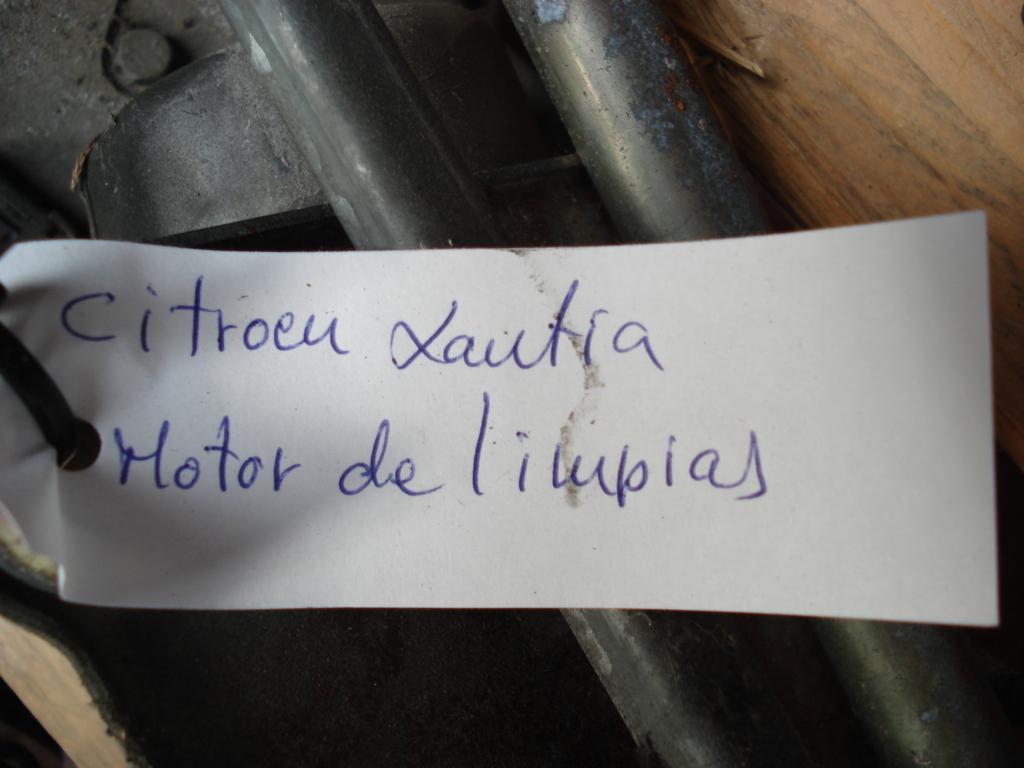 Citroen Xantia
Motor de limpias